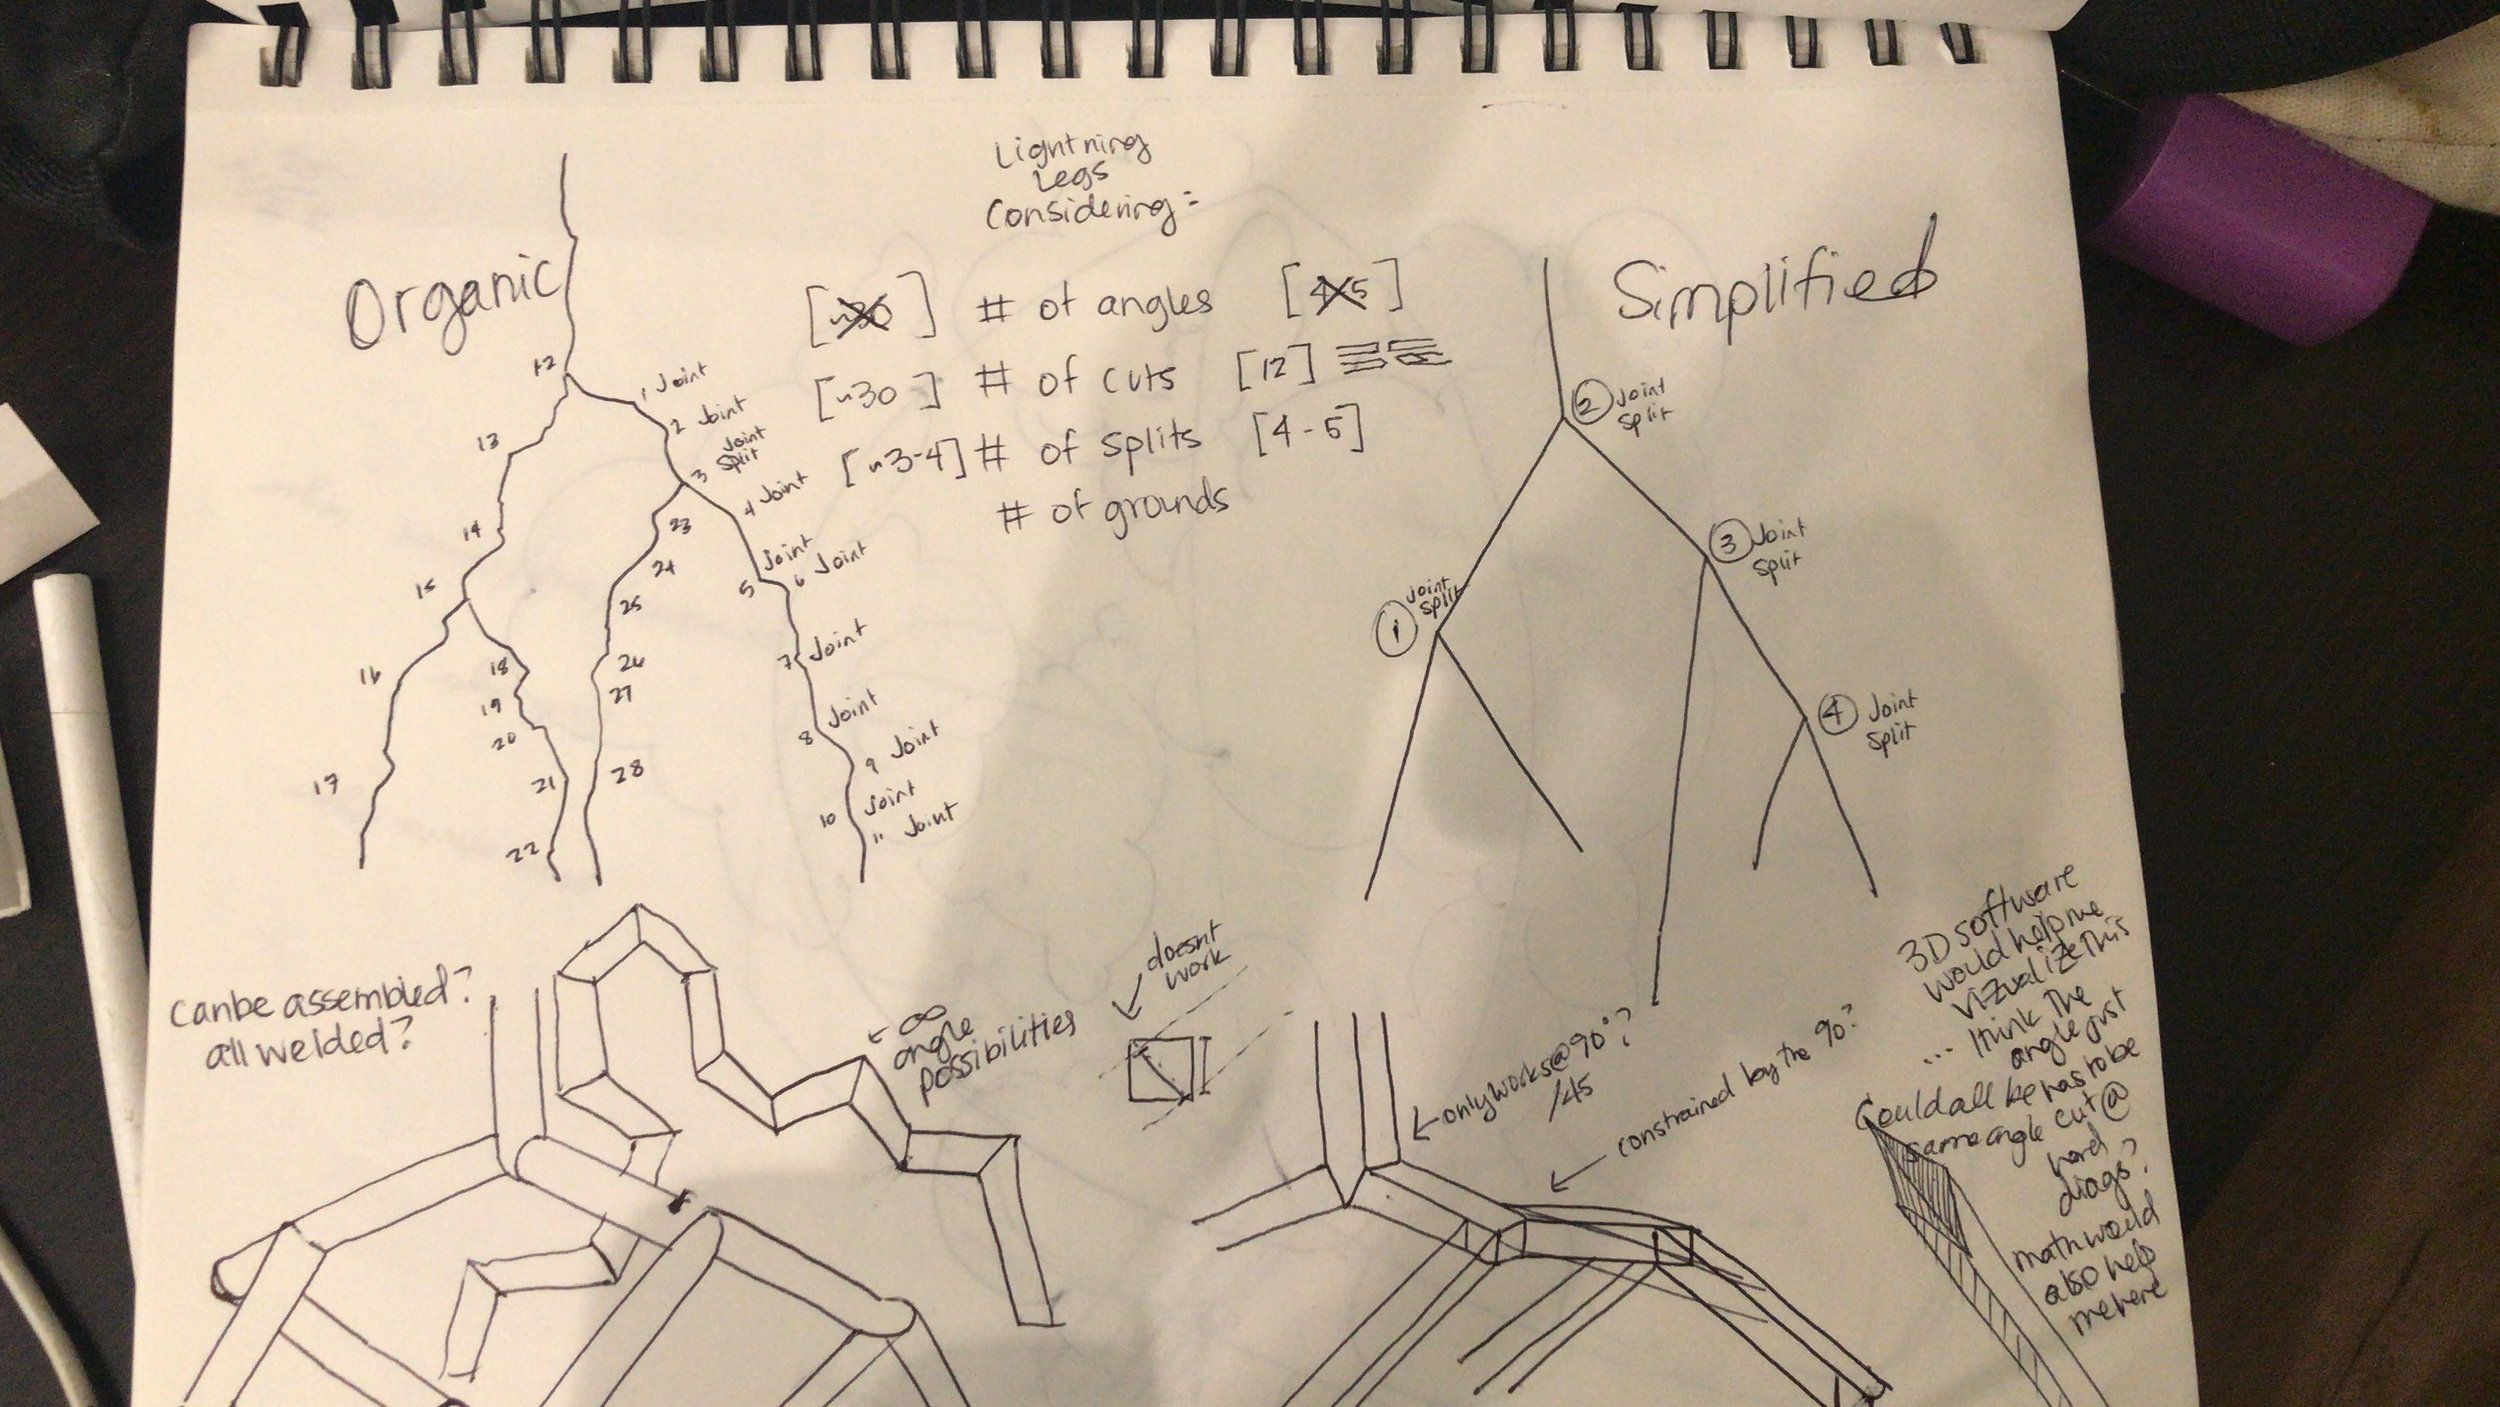 Lightning
Legs
Considering:
Organic
Simplified
[~30] # of angles [4-5]
[~30] # of cuts [12]
[~3-4] # of splits [4-5]
# of grounds
12
1 Joint
2 Joint
Joint
Split
3
4 Joint
Joint
5
6 Joint
7 Joint
Joint
8
9 Joint
Joint
10
11 Joint
13
14
15
16
17
18
19
20
21
22
23
24
25
26
27
28
2 Joint
Split
3 Joint
Split
Joint
Split
1
4 Joint
Split
can be assembled?
all welded?
← ∞
angle
possibilities
doesnt
work
only works @ 90°?
/45
constrained by the 90?
3D software
would help me
vizualize this
... I think the
angle just
has to be
cut @
hard
diags?
math would
also help
me here
Could all be
same angle